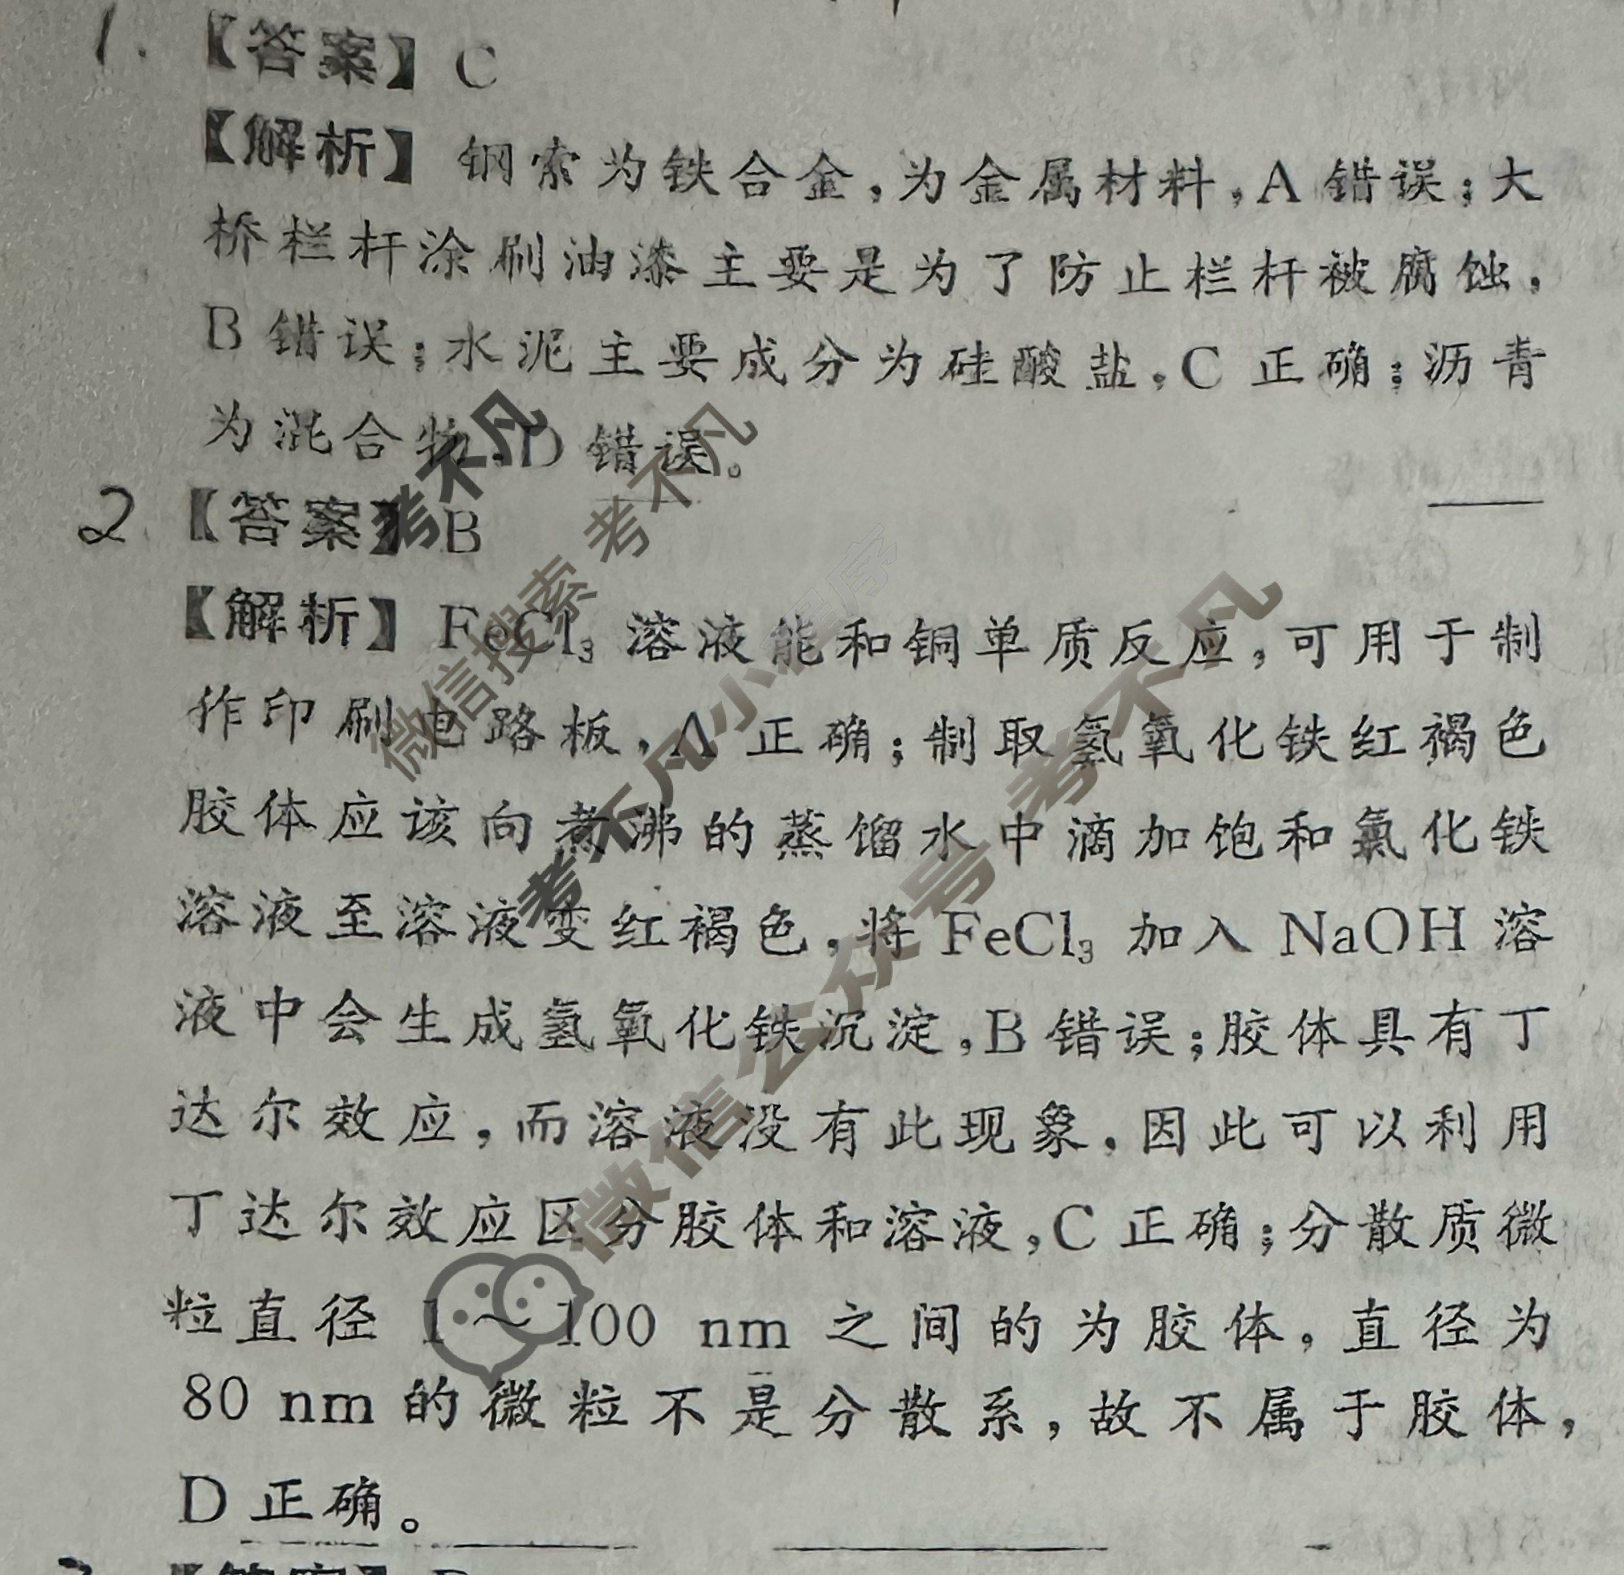 1.【答案】C
【解析】钢索为铁合金,为金属材料,A错误;大
桥栏杆涂刷油漆主要是为了防止栏杆被腐蚀,
B错误;水泥主要成分为硅酸盐,C 正确;沥青
为混合物,D错误。
2.【答案】B
【解析】FeCl₃ 溶液能和铜单质反应,可用于制
作印刷电路板,A 正确;制取氢氧化铁红褐色
胶体应该向煮沸的蒸馏水中滴加饱和氯化铁
溶液至溶液变红褐色,将 FeCl₃ 加入 NaOH 溶
液中会生成氢氧化铁沉淀,B错误;胶体具有丁
达尔效应,而溶液没有此现象,因此可以利用
丁达尔效应区分胶体和溶液,C 正确;分散质微
粒直径 1～100 nm 之间的为胶体,直径为
80 nm 的微粒不是分散系,故不属于胶体,
D 正确。
考不凡
微信搜索 考不凡
考不凡小程序
微信公众号 考不凡